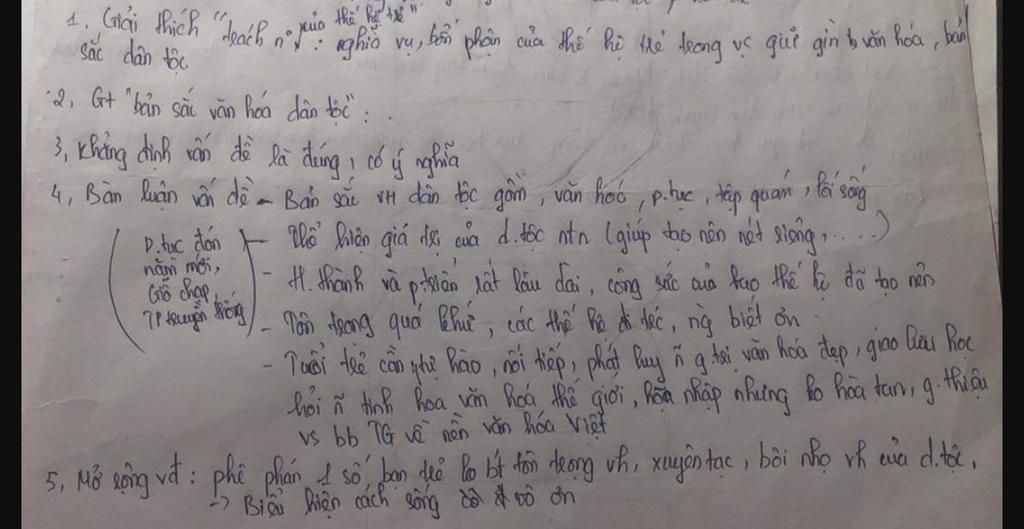 1, Giải thích "trách nz của thế hệ trẻ": nghĩa vụ, bổn phận của thế hệ trẻ trong vc giữ gìn b văn hoá, bản
sắc dân tộc
2, Gt "bản sắc văn hoá dân tộc": .
3, Khẳng định vấn đề là đúng, có ý nghĩa
4, Bàn luận vấn đề - Bản sắc VH dân tộc gồm, văn hoá, p.tục, tập quán, lối sống
- Thể hiện giá trị của d.tộc ntn (giúp tạo nên nét riêng, .....)
- H.thành và p.triển rất lâu dài, công sức của bao thế hệ đã tạo nên
- Tôn trọng quá khứ, các thế hệ đi trc, ng biết ơn
- Tuổi trẻ cần tự hào, nối tiếp, phát huy ñ g.trị văn hoá đẹp, giao lưu học
hỏi ñ tinh hoa văn hoá thế giới, hoà nhập nhưng ko hòa tan, g.thiệu
vs bb TG về nền văn hóa Việt
(P.tục đón
năm mới,
Giỗ chạp,
TP truyền thống)
5, Mở rộng vđ: phê phán 1 số bạn trẻ ko bt tôn trọng vh, xuyên tạc, bôi nhọ vh của d.tộc,
-> Biểu hiện cách sống vô ơn